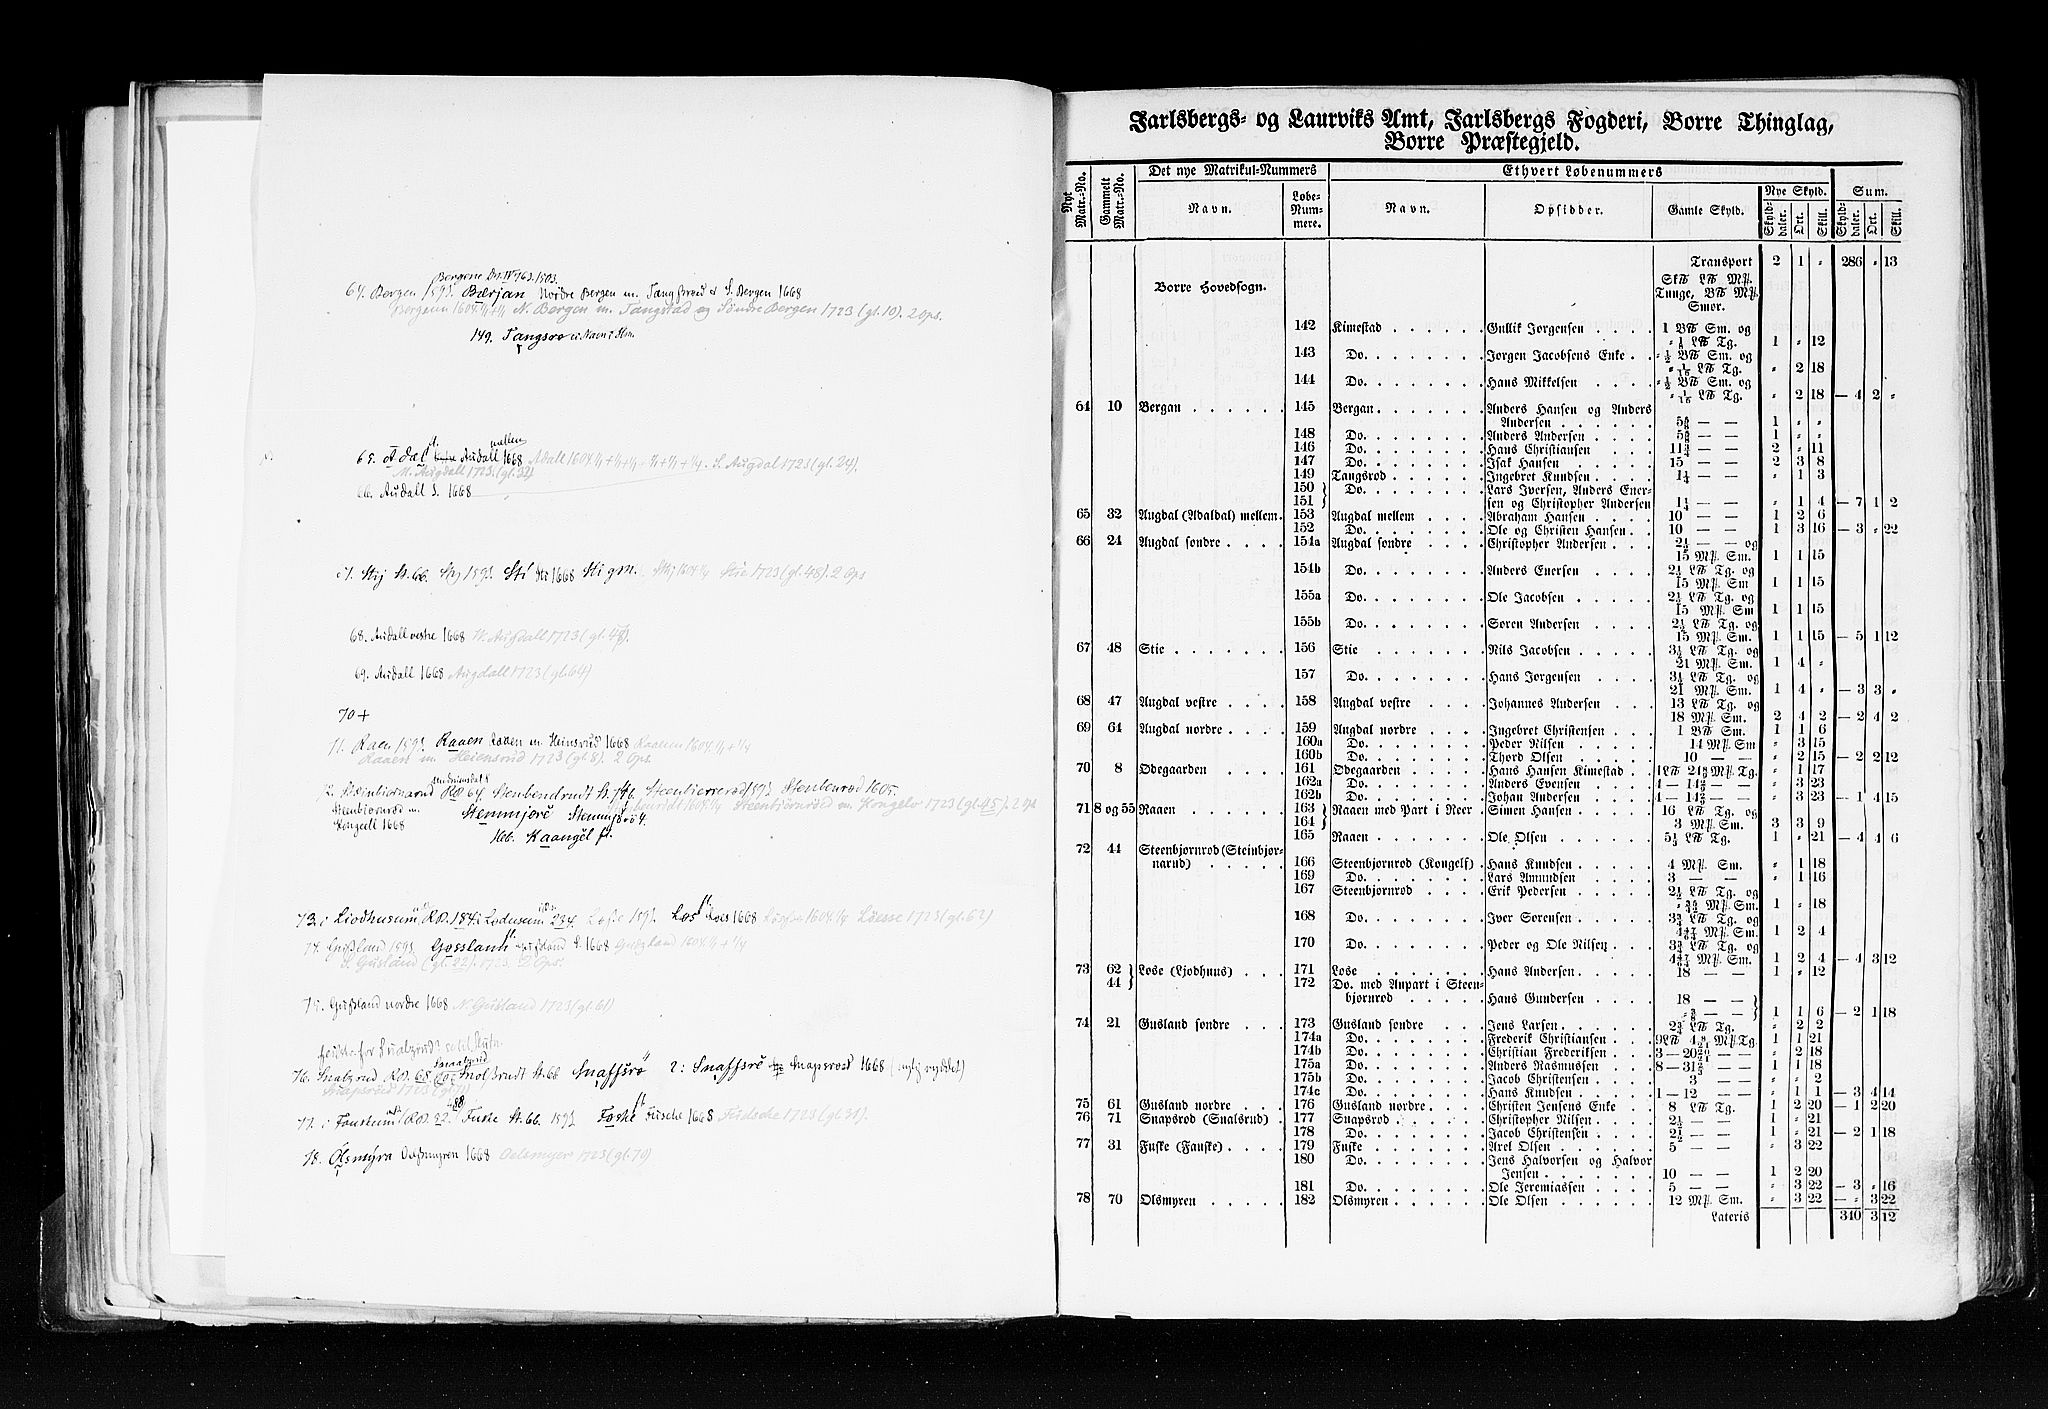 Bergene Dn. IV 763. 1503.
64. Bergen 1593. Bærjan Nordre Bergen m. Tangsrød & S. Bergen 1668
Bergenn 1604. 1/1 + 1/1 N. Bergen m. Tangstad og Søndre Bergen 1723 (gl. 10). 2 Ops.
149. Tangsrø u. Navn i Hm.
mellem
65. Adal Audall 1668 Adall 1604. S. Augdal 1723 (gl. 24)
M. Augdall 1723. (gl. 32)
66. Audall S. 1668
67. Stij St. 66. Stij 1593. Sti Sti 1668 Stigm. Stij 1604 1/1 Stie 1723 (gl. 48). 2 Ops
68. Audall vestre 1668 W. Augdall 1723 (gl. 47).
69. Audall 1668 Augdall 1723 (gl. 64)
70 +
71. Raen 1593. Raaen Raaen m. Heinsrud 1668 Raaenn 1604. 1/1 + 1/4
Raaen m. Heiensrud 1723 (gl. 8). 2 Ops.
72. RB. 64. Steenbiørnerød 1593 Stenbenrød 1605.
Steenbiornrød m. Kongelv 1723 (gl. 45). 2 Ops
Steenbiornrød m. Stemmjorè
Kongell 1668
Heb. Kaangél f.
73. i Liodhusum RB. 184. i Lodusum 234. Løsse 1593. Løs Løes 1668 Løesse 1723 (gl. 62)
74. Gusland 1593. Gøsslann S. 1668 Gusland 1604. 1/1 + 1/4
S. Gusland (gl. 22). 1723. 2 Ops.
75. Gusland nordre 1668 N. Gusland 1723 (gl. 61)
76. Snalzrud RB. 68 St. 66 Snaffsrö 2: Snaffsrö Snapsrød 1668 (nylig ryddet)
Snapsrød 1723 (gl. 71)
77. i Fauskum RB. 22. Fuske St. 66. 1593 Foske Fusche 1668 Fudsche 1723 (gl. 31).
78. Ölsmyra Oelsmyren 1668 Oelsmyer 1723 (gl. 70)
Jarlsbergs- og Laurviks Amt, Jarlsbergs Fogderi, Borre Thinglag,
Borre Præstegjeld.
Nye Matr.-No. Gammelt Matr.-No. Det nye Matrikul-Nummers Ethvert Løbenummers
Nye Skyld. Sum.
Navn. Løbe-Nummere. Navn. Opsidder. Gamle Skyld. Skylddaler. Ort. Skill. Skylddaler. Ort. Skill.
Transport 2 1 " 286 " 13
Sk℔ L℔ M𝔭.
Borre Hovedsogn. Tunge, B℔ M𝔭.
Smør.
142 Kimestad Gullik Jørgensen 1 B℔ Sm. og
" 1/8 L℔ Tg. 1 " 12
143 Do. Jørgen Jacobsens Enke " 1/2 B℔ Sm. og
" 1/16 L℔ Tg. " 2 18
144 Do. Hans Mikkelsen " 1/2 B℔ Sm. og
" 1/16 L℔ Tg. " 2 18 — 4 2 "
64 10 Bergan 145 Bergan Anders Hansen og Anders
Andersen 5 5/8 — — 1 " "
148 Do. Anders Andersen 5 5/8 — — 1 " "
146 Do. Hans Christiansen 11 3/4 — — 2 " 11
147 Do. Isak Hansen 15 — — 2 3 8
149 Tangsrød Ingebret Knudsen 1 1/4 — — " 1 3
150 } Do. Lars Iversen, Anders Ener-
151 } sen og Christopher Andersen 1 1/4 — — " 1 4 — 7 1 2
65 32 Augdal (Adaldal) mellem 153 Augdal mellem Abraham Hansen 10 — — 1 2 6
152 Do. Ole og Christen Hansen 10 — — 1 3 16 — 3 " 22
66 24 Augdal søndre 154a Augdal søndre Christopher Andersen 2 1/2 — — og
15 M𝔭. Sm. 1 1 15
154b Do. Anders Enersen 2 1/2 L℔ Tg. og
15 M𝔭. Sm 1 1 15
155a Do. Ole Jacobsen 2 1/2 L℔ Tg. og
15 M𝔭. Sm 1 1 15
155b Do. Søren Andersen 2 1/2 L℔ Tg. og
15 M𝔭. Sm. 1 1 15 — 5 1 12
67 48 Stie 156 Stie Nils Jacobsen 3 1/2 L℔ Tg. og
21 M𝔭. Sm. 1 4 "
157 Do. Hans Jørgensen 3 1/2 L℔ Tg. og
21 M𝔭. Sm. 1 4 " — 3 3 "
68 47 Augdal vestre 158 Augdal vestre Johannes Andersen 13 L℔ Tg. og
18 M𝔭. Sm. 2 4 2 — 2 4 2
69 64 Augdal nordre 159 Augdal nordre Ingebret Christensen 1 B℔ Sm. 1 1 6
160a Do. Peder Nilsen 14 M𝔭. Sm " 3 15
160b Do. Thord Olsen 10 — — " 2 15 — 2 2 12
70 8 Ødegaarden 161 Ødegaarden Hans Hansen Kimestad 1L℔ 21 M𝔭. Tg. " 1 17
162a Do. Anders Evensen 4 — 14 2/3 — — " 3 23
162b Do. Johan Andersen 4 — 14 2/3 — — " 3 23 — 1 4 15
71 8 og 55 Raaen 163 } Raaen med Part i Reer Simen Hansen 16 L℔ Tg. og
164 } 3 M𝔭. Sm. 3 3 9
165 Raaen Ole Olsen 5 1/3 L℔ Tg. 1 " 21 — 4 4 6
72 44 Steenbjørnrød (Steinbjør-
narud) 166 Steenbjørnrød (Kongelf) Hans Knudsen 4 M𝔭. Sm. " 1 18
169 Do. Lars Amundsen 3 — — " 1 16
167 Steenbjørnrød Erik Pedersen 2 1/2 L℔ Tg. og
M𝔭. Sm. 1 " 18
168 Do. Iver Sørensen 3 3/4 L℔ Tg. og
M𝔭. Sm. 1 2 4
170 Do. Peder og Ole Nilsen 3 3/4 L℔ Tg. og
M𝔭. Sm. 1 2 4 — 4 3 12
73 62 } Løse (Ljodhuus) 171 Løse Hans Andersen 18 — — 1 " 12
44 } 172 Do. med Anpart i Steen-
bjørnrød Hans Gundersen 18 — — }
" 3/8 — — } 1 1 6 — 2 1 18
74 21 Gusland søndre 173 Gusland søndre Jens Larsen 2 3/4 L℔ Tg. " 2 2
174a Do. Frederik Christiansen 9L℔ 4 8/21 M𝔭. Tg. 1 1 21
174b Do. Christian Frederiksen 3 — 20 20/21 — — " 2 18
175a Do. Anders Rasmussen 8 — 31 2/3 — — 1 1 18
175b Do. Jacob Christensen 3 — — " " 2
174c Do. Hans Knudsen 1 — 12 — — " 1 1 — 3 4 14
75 61 Gusland nordre 176 Gusland nordre Christen Jensens Enke 8 L℔ Tg. 1 2 20 — 1 2 20
76 71 Snapsrød (Snalsrud) 177 Snapsrød Christopher Nilsen 2 1/2 — — 1 " 21
178 Do. Jacob Christensen 2 1/2 — — 1 " 21 — 2 1 18
77 31 Fuske (Fauske) 179 Fuske Axel Olsen 5 — — " 3 22
180 Do. Jens Halvorsen og Halvor
Jensen 10 — — 1 2 20
181 Do. Ole Jeremiassen 5 — — " 3 22 — 3 " 16
78 70 Olsmyren 182 Olsmyren Ole Olsen 12 M𝔭. Sm. " 3 22 — " 3 22
Lateris 340 3 12